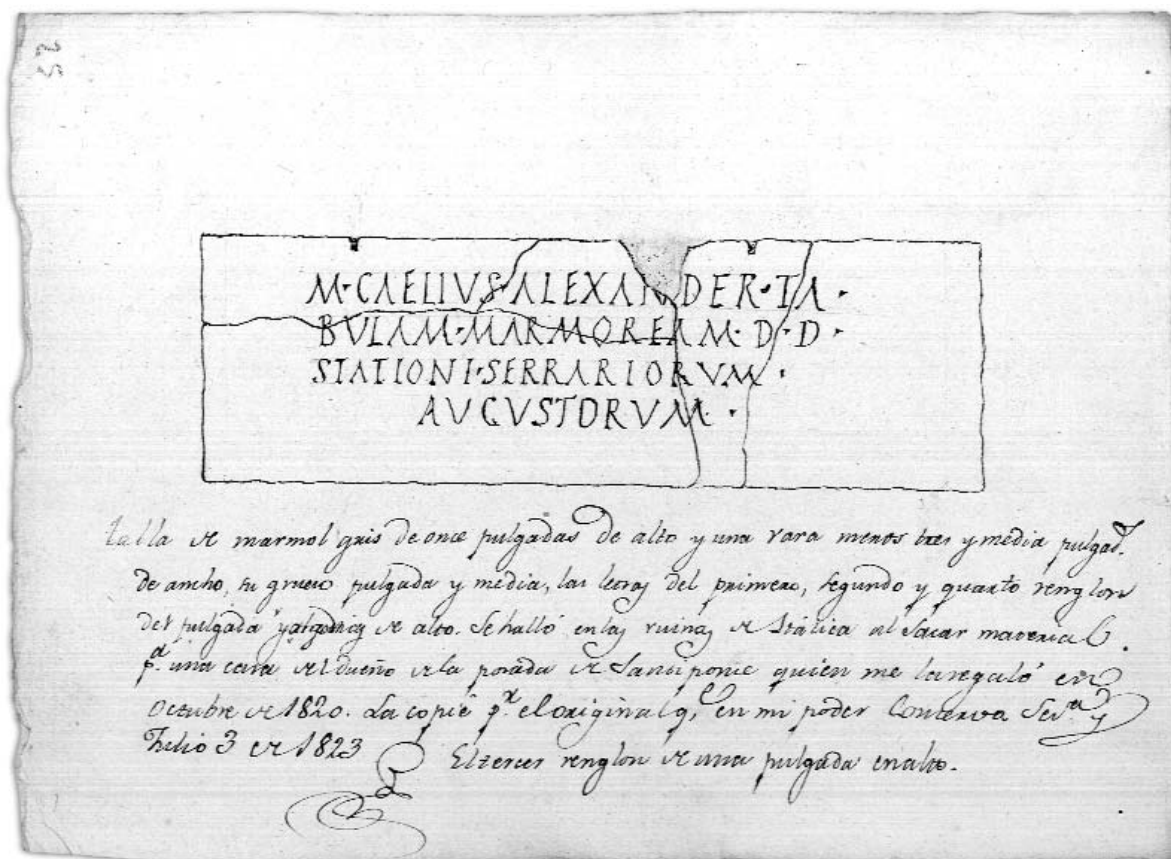 M·CAELIVS·ALEXANDER·TA·
BVLAM·MARMOREAM·D·D·
STATIONI·SERRARIORVM·
AVGVSTORVM·
talla de marmol gris de once pulgadas de alto y una vara menos tres y media pulgad.s
de ancho, su grueso pulgada y media, las letras del primero, segundo y quarto renglon
de 1 pulgada y de alto. Se halló en las ruinas de Itálica al sacar material
p.a una casa del dueño de la posada de Santiponce quien me la regaló en
Octubre de 1820. La copié p.r el original q.e en mi poder conserva Sev.a y
Julio 3 de 1823
El tercer renglon de una pulgada en alto.